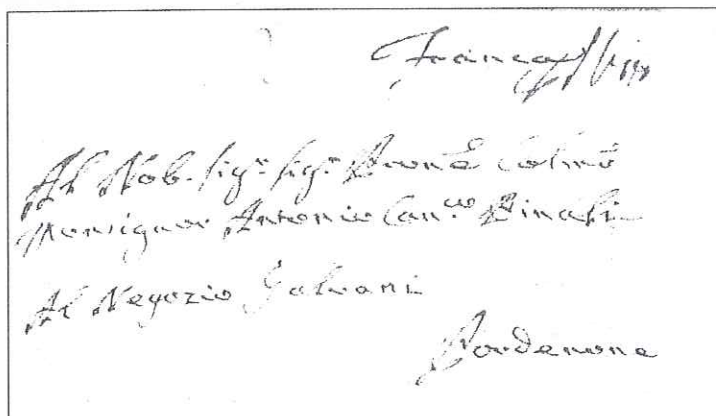 Franca
Al Nob. Sigr. Sigr. Pron̄e Colmō
Monsignor Antonio Can.co
Al Negozio Galvani
Pordenone